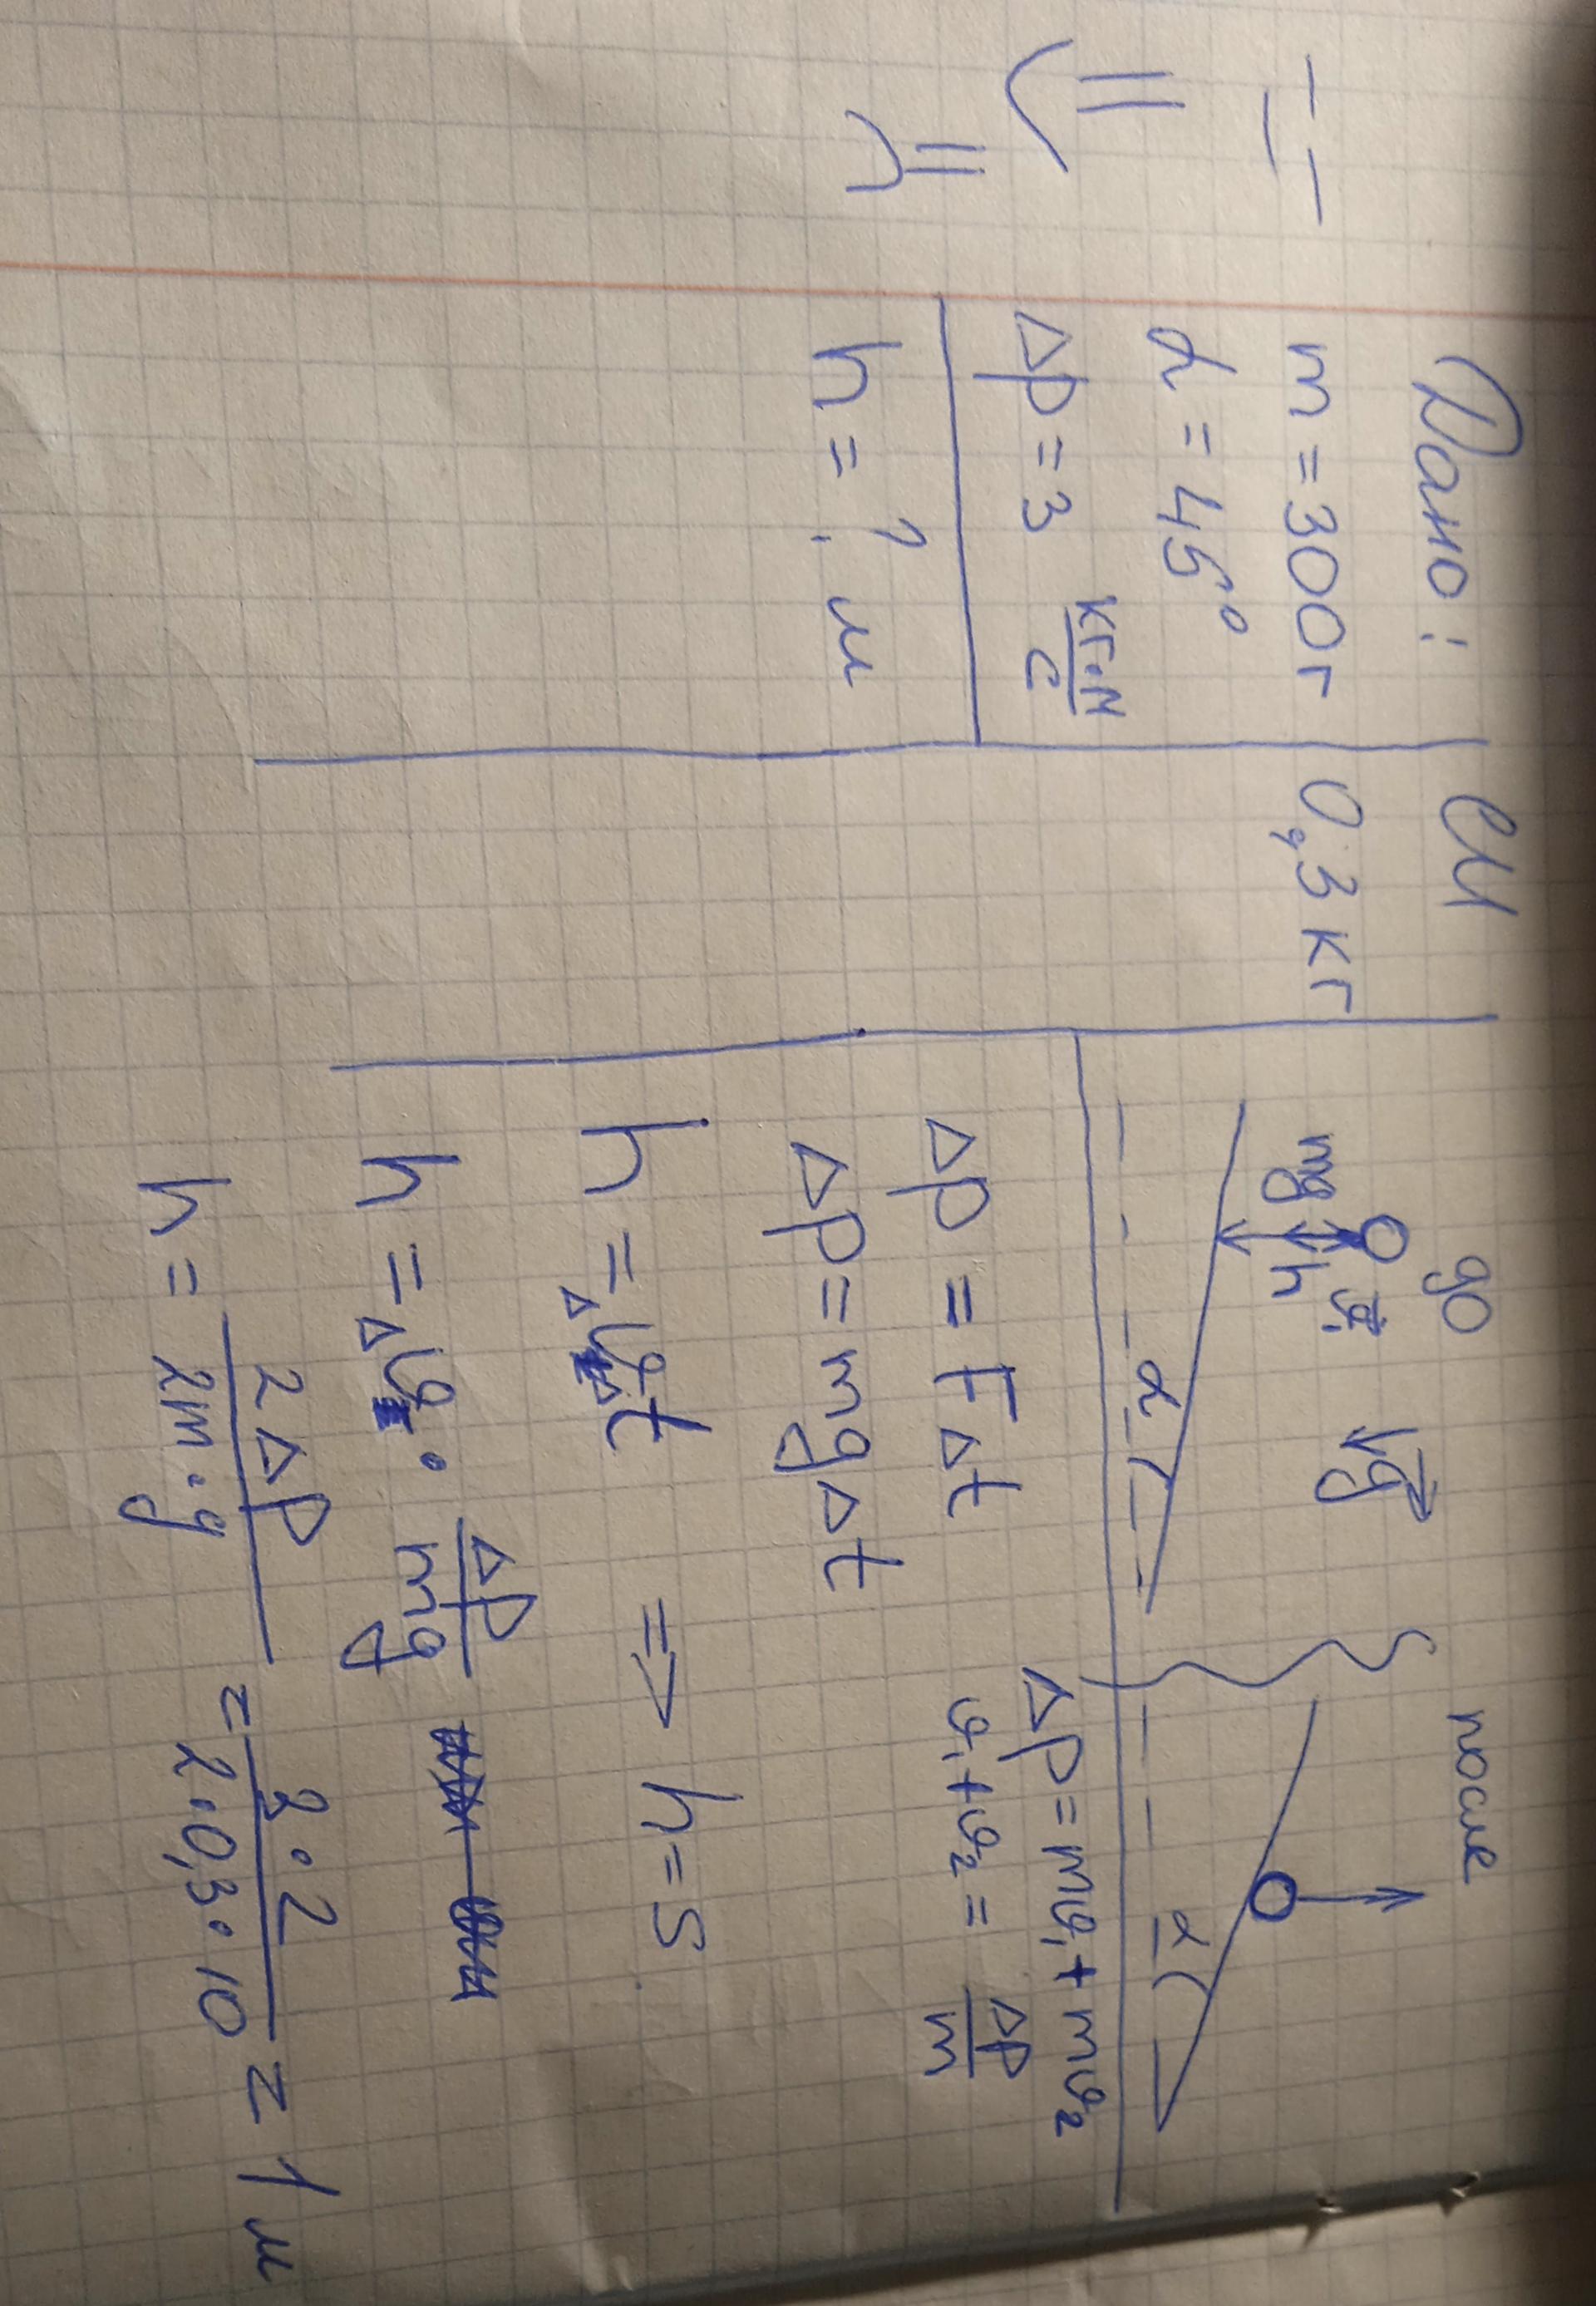 Дано:
m = 300 г
α = 45°
Δp = 3 кг·м/с
h = ? м
СИ
0,3 кг
до
после
mg
h
g
α
α
Δp = mϑ₁ + mϑ₂
ϑ₁ + ϑ₂ = Δp/m
Δp = F Δt
Δp = mgΔt
h = Δϑt => h = S
h = Δϑ · Δp/mg
h = 2Δp/2m·g = 2·2/2·0,3·10 = 1 м